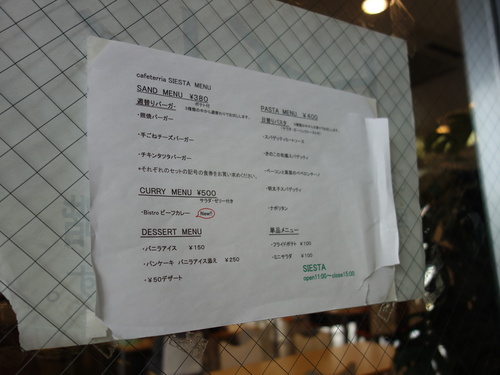 cafeterria SIESTA MENU
SAND MENU ¥380
週替りバーガー
2種類の中から週替わりでお出しします。
・照焼バーガー
・手ごねチーズバーガー
・チキンタツタバーガー
*それぞれのセットの記号の食券をお買い求めください。
CURRY MENU ¥500
サラダ・ゼリー付き
・Bistro ビーフカレー New!!
DESSERT MENU
・バニラアイス ¥150
・パンケーキ バニラアイス添え ¥250
・¥50デザート
PASTA MENU ¥600
日替りパスタ
・スパゲッティミートソース
・きのこの和風スパゲッティ
・ベーコンと葉菜のペペロンチーノ
・明太子スパゲッティ
・ナポリタン
単品メニュー
・フライドポテト ¥100
・ミニサラダ ¥100
SIESTA
open11:00～close15:00